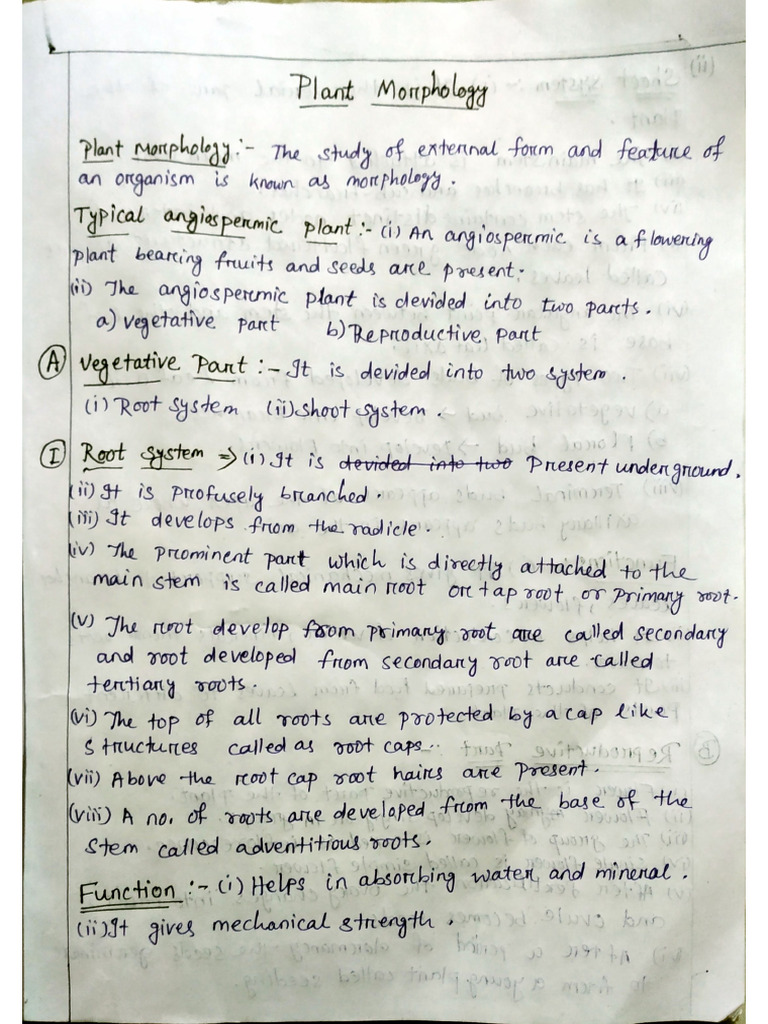 Plant Morphology
Plant Morphology :- The study of external form and feature of
an organism is known as morphology.
Typical angiospermic plant :- (i) An angiospermic is a flowering
plant bearing fruits and seeds are present.
(ii) The angiospermic plant is devided into two parts.
a) vegetative part b) Reproductive part
(A) Vegetative Part :- It is devided into two system.
(i) Root system (ii) shoot system.
(I) Root system => (i) It is devided into two Present underground.
(ii) It is profusely branched.
(iii) It develops from the radicle.
(iv) The prominent part which is directly attached to the
main stem is called main root or tap root or primary root.
(v) The root develop from primary root are called secondary
and root developed from secondary root are called
tertiary roots.
(vi) The top of all roots are protected by a cap like
structures called as root caps.
(vii) Above the root cap root hairs are present.
(viii) A no. of roots are developed from the base of the
stem called adventitious roots.
Function :- (i) Helps in absorbing water and mineral.
(ii) It gives mechanical strength.